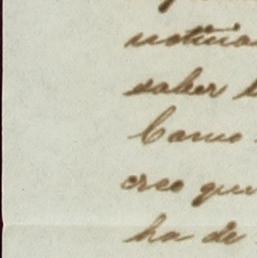 noticia
saber
Como
creo que
ha de